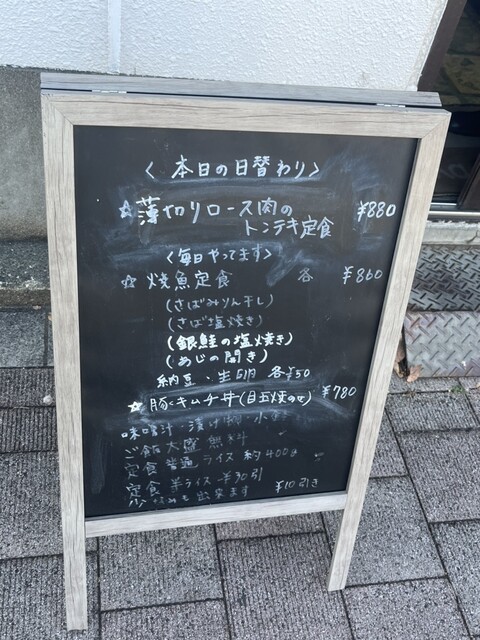 〈本日の日替わり〉
☆薄切りロース肉の ¥880
トンテキ定食
〈毎日やってます〉
☆焼魚定食 各 ¥860
(さばみりん干し)
(さば塩焼き)
(銀鮭の塩焼き)
(あじの開き)
納豆、生卵 各¥50
☆豚キムチ丼(目玉焼のせ) ¥780
味噌汁・漬け物・小
ご飯大盛無料
定食普通ライス約400g
定食半ライス¥30引
出来ます ¥10引き